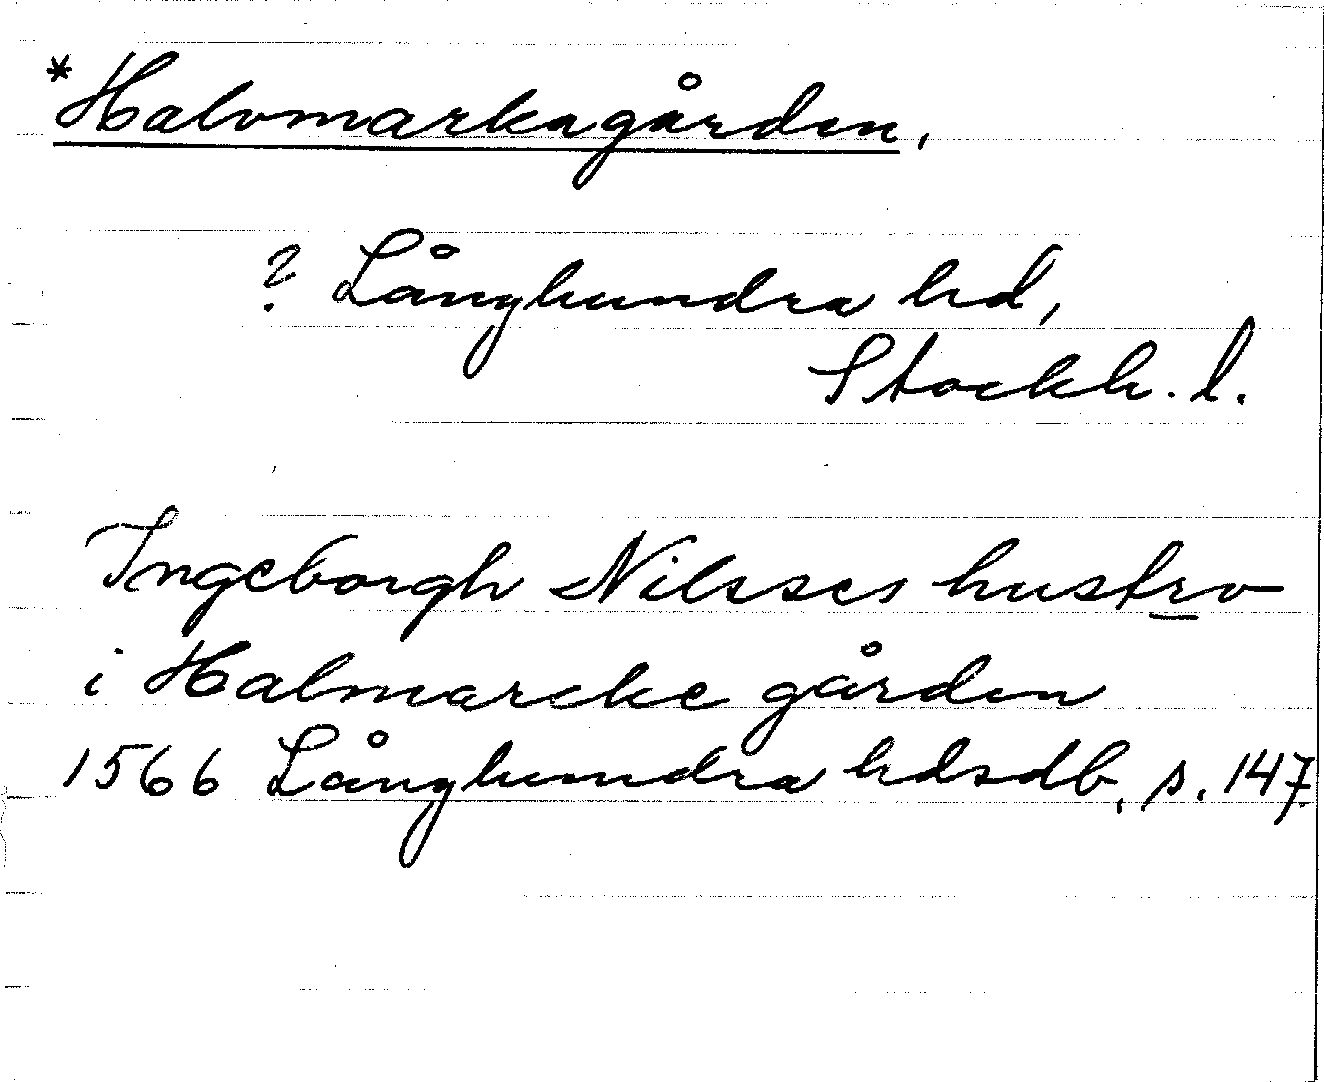 *Halvmarkagården,
? Långhundra hd,
Stockh. l.
Ingeborgh Nilsses hustro
i Halmarcke gården
1566 Långhundra hdsdb, s. 147